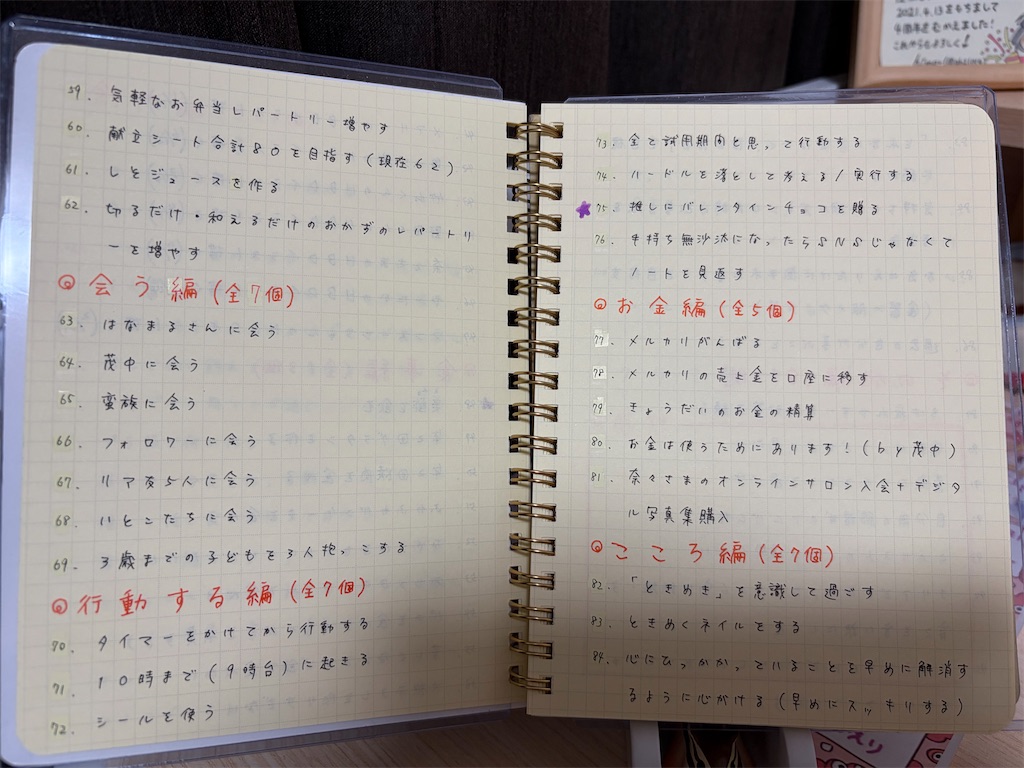 59. 気軽なお弁当レパートリー増やす
60. 献立シート合計80を目指す(現在62)
61. しそジュースを作る
62. 切るだけ・和えるだけのおかずのレパートリ
ーを増やす
◎会う編(全7個)
63. はなまるさんに会う
64. 茂中に会う
65. 蛮族に会う
66. フォロワーに会う
67. リア友5人に会う
68. いとこたちに会う
69. 3歳までの子どもを3人抱っこする
◎行動する編(全7個)
70. タイマーをかけてから行動する
71. 10時まで(9時台)に起きる
72. シールを使う
73. 全て試用期間と思って行動する
74. ハードルを落として考える/実行する
75. 推しにバレンタインチョコを贈る
76. 手持ち無沙汰になったらSNSじゃなくて
ノートを見返す
◎お金編(全5個)
77. メルカリがんばる
78. メルカリの売上金を口座に移す
79. きょうだいのお金の精算
80. お金は使うためにあります!(by茂中)
81. 奈々さまのオンラインサロン入会+デジタ
ル写真集購入
◎こころ編(全7個)
82. 「ときめき」を意識して過ごす
83. ときめくネイルをする
84. 心にひっかかっていることを早めに解消す
るように心がける(早めにスッキリする)
2021.4.13をもちまして
4周年をむかえました!
これからもよろしく!